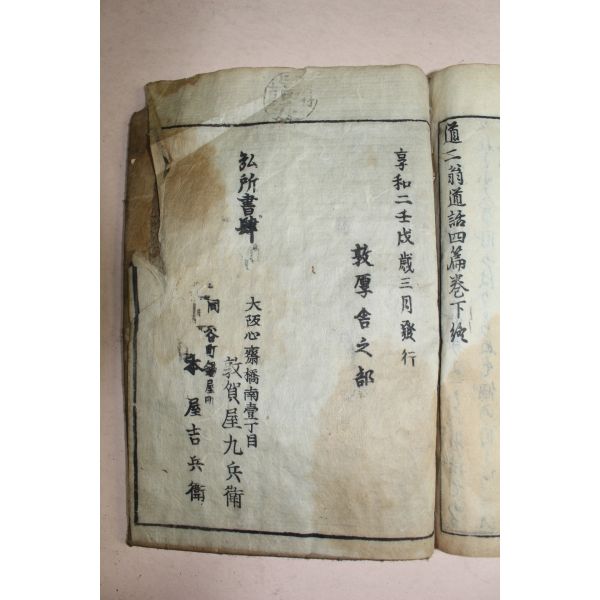 道二翁道話四篇巻下終
享和二壬戌歳三月發行
敦厚舎之部
弘所書肆
大阪心齋橋南壹丁目
敦賀屋九兵衛
同 谷町 屋町
本屋吉兵衛